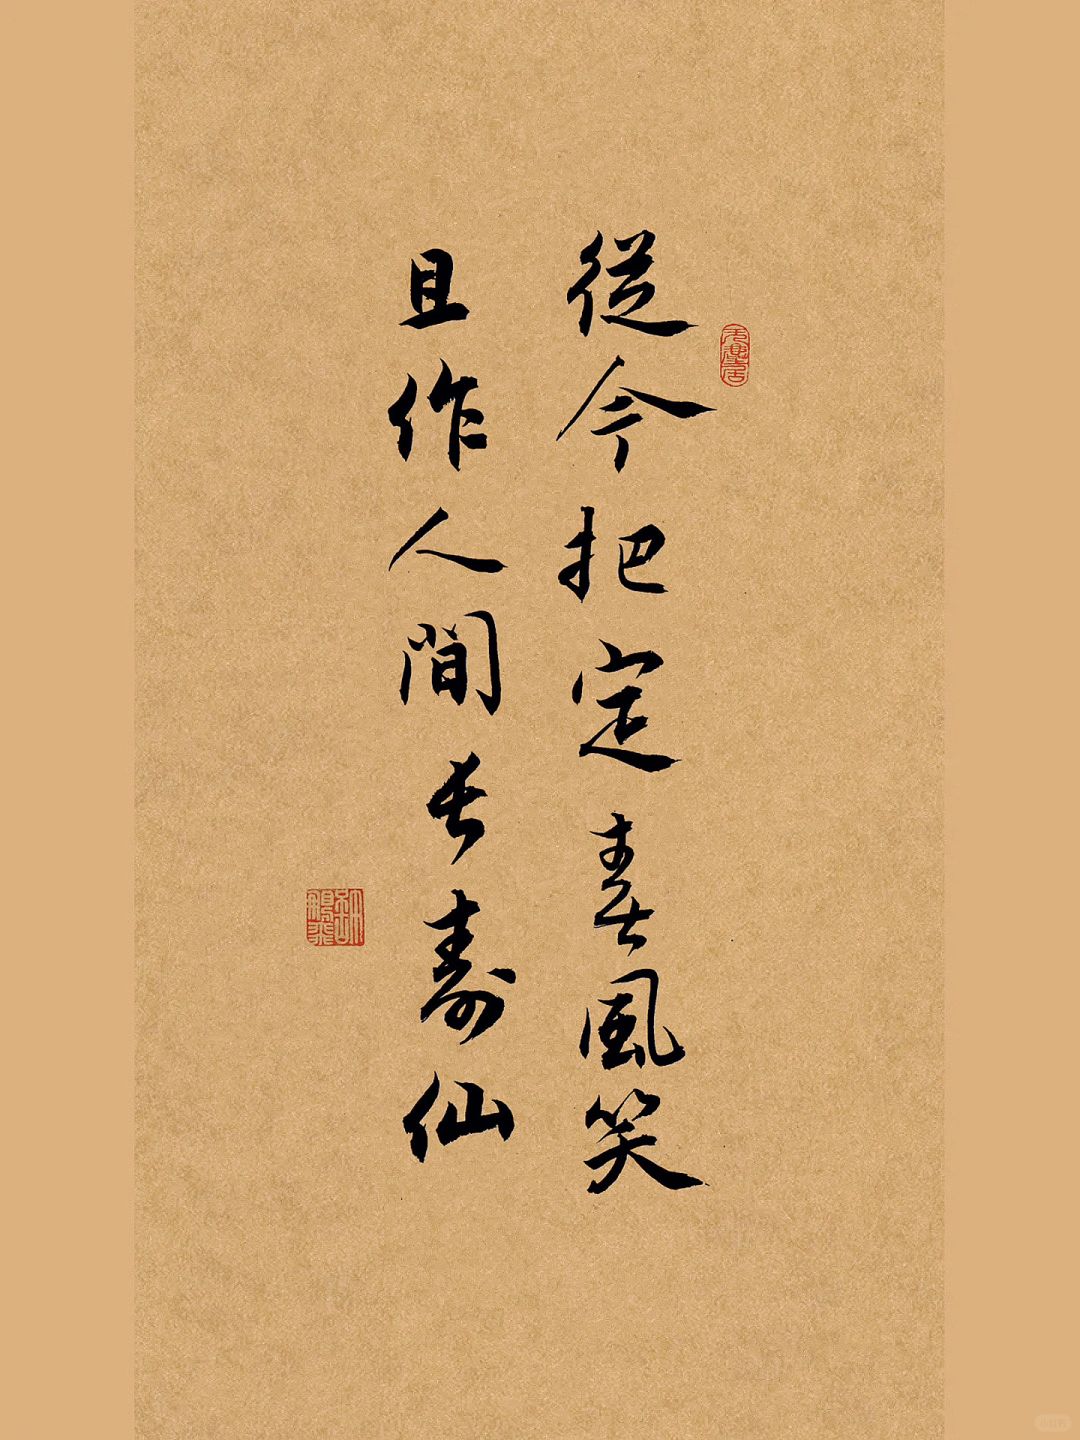 從今把定春風笑
且作人間長壽仙